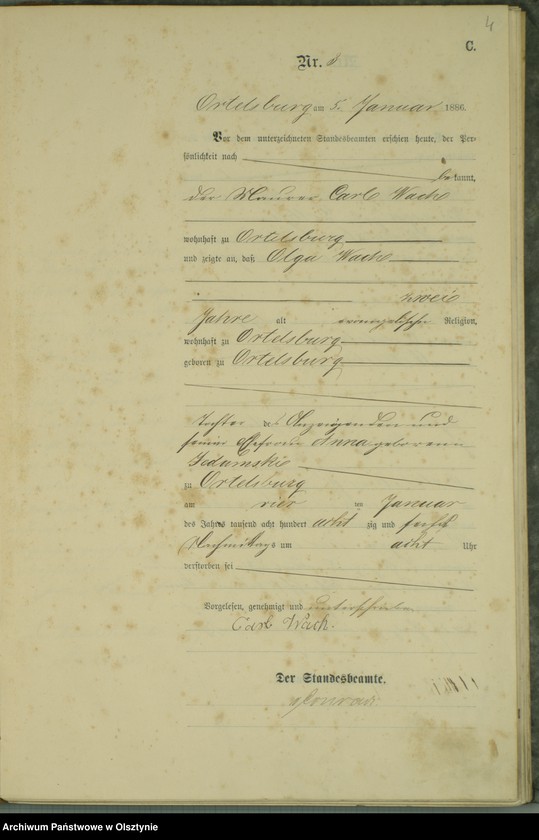 4
C.
Nr.
Ortelsburg am 5. Januar 1886.
Vor dem unterzeichneten Standesbeamten erschien heute, der Per-
sönlichkeit nach
bekannt,
der Maurer Carl Wach
wohnhaft zu Ortelsburg
und zeigte an, daß Olga Wach
zwei
Jahre alt evangelischer Religion,
wohnhaft zu Ortelsburg
geboren zu Ortelsburg
Tochter des Anzeigenden und
seiner Ehefrau Anna geborenen
zu Ortelsburg
am vier ten Januar
des Jahres tausend acht hundert acht zig und sechs
Nachmittags um acht Uhr
verstorben sei
Vorgelesen, genehmigt und unterschrieben
Carl Wach.
Der Standesbeamte.
Archiwum Państwowe w Olsztynie